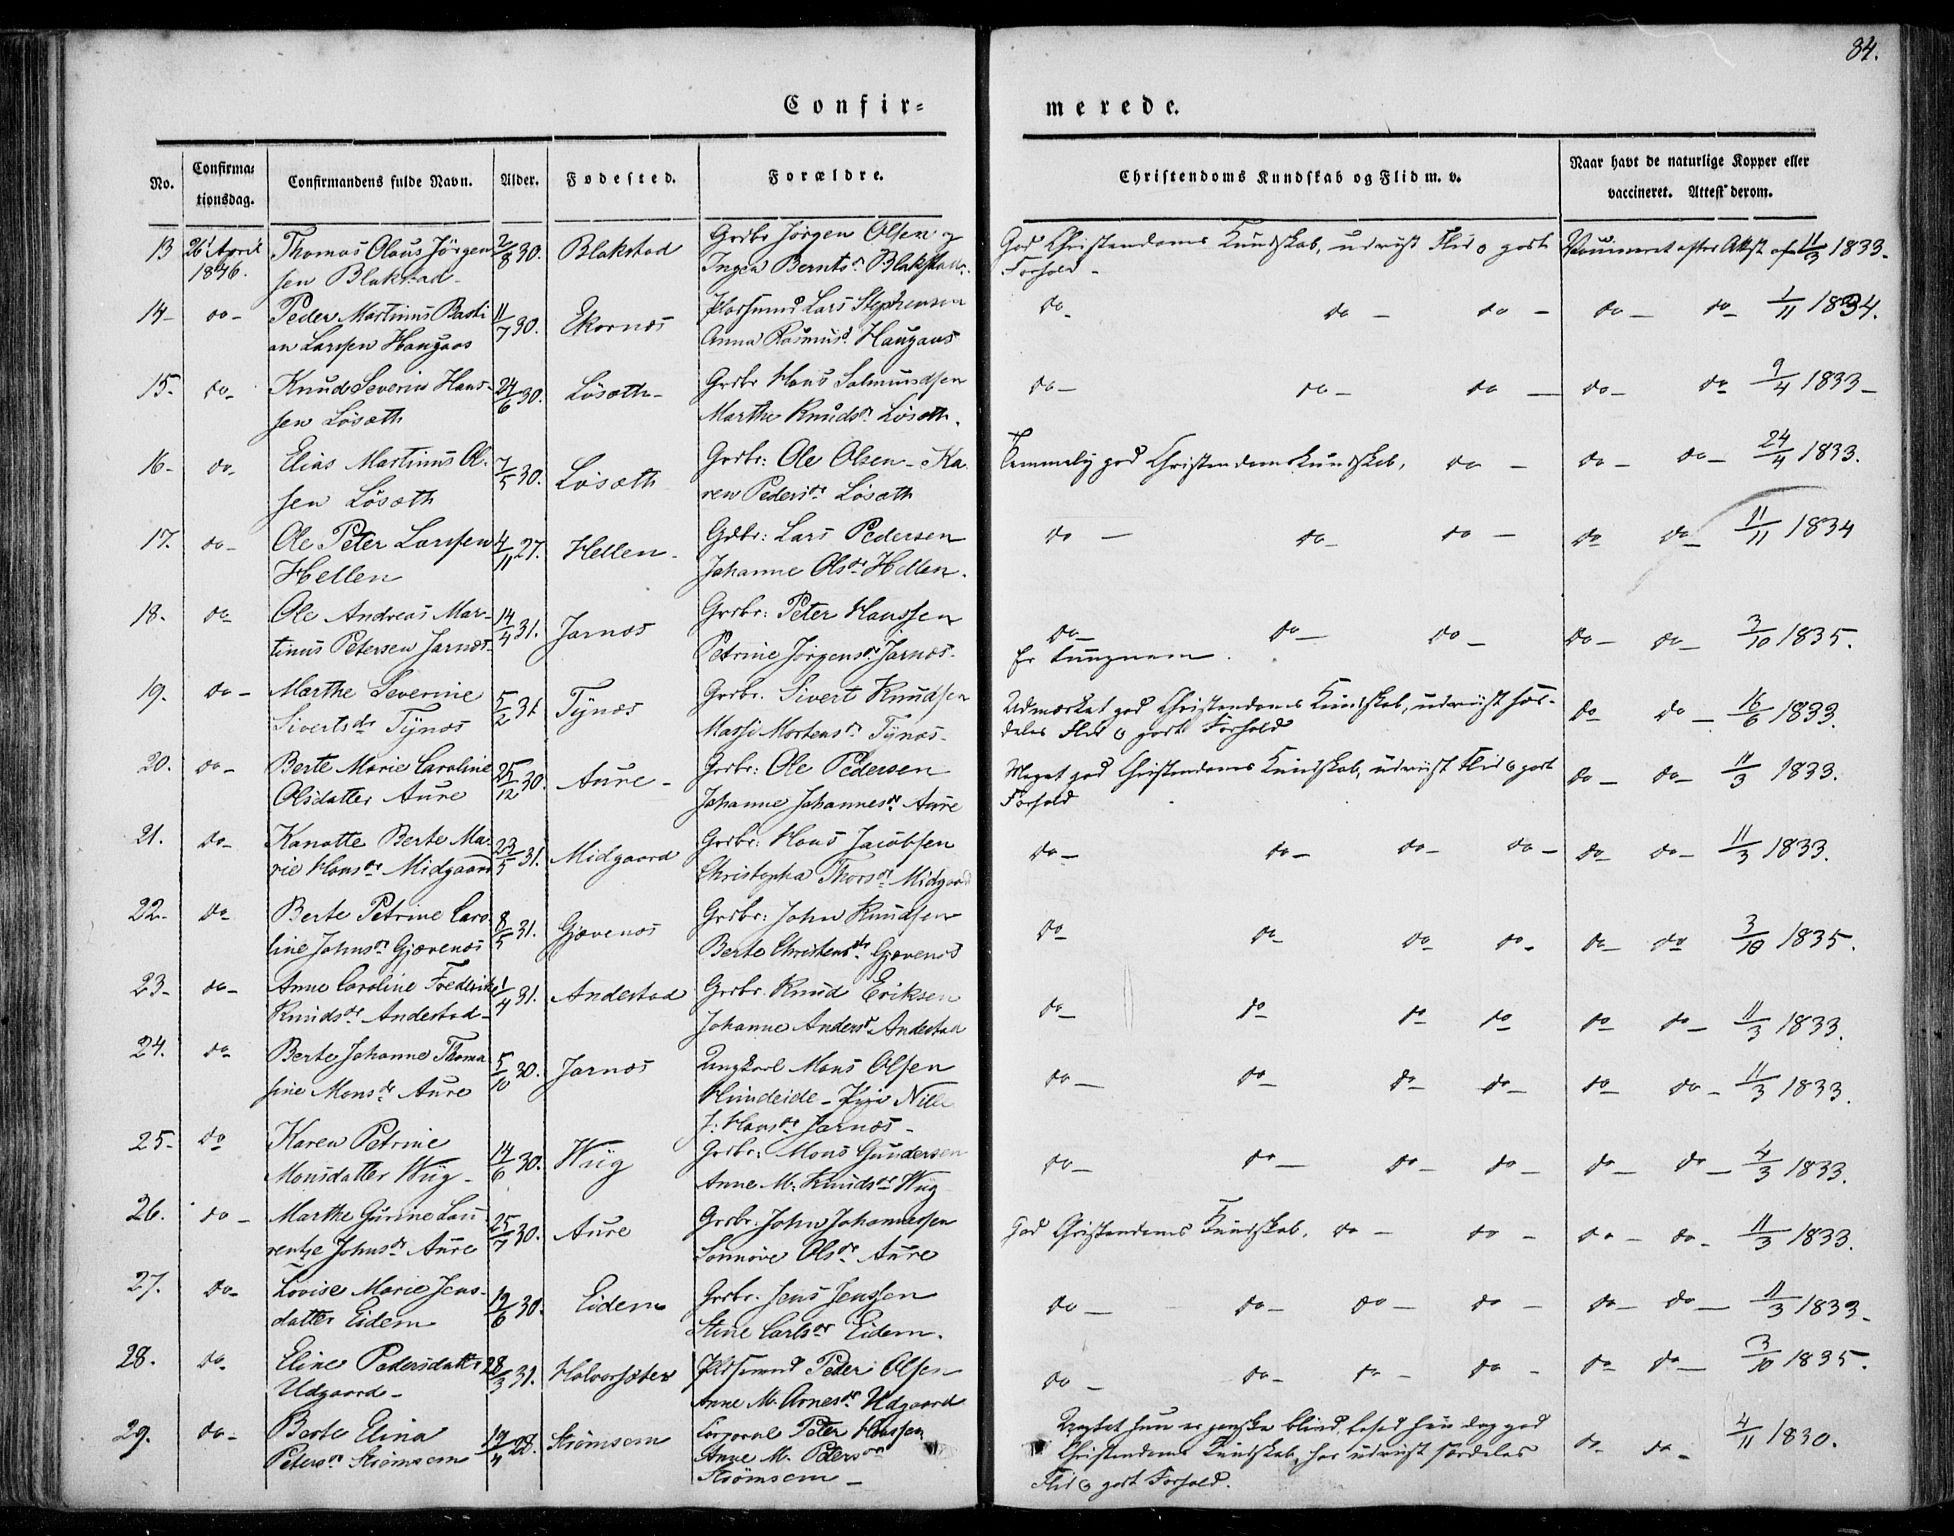 84.
Confir-
merede.
No.
Confirma-
tionsdag.
Confirmandens fulde Navn.
Alder.
Fødested.
Forældre.
Christendoms Kundskab og Flid m. v.
Naar havt de naturlige Kopper eller
vaccineret. Attest derom.
13 26 April Thomas Olaus Jörgen 2/8 30. Blakstad Grdbr Jörgen Olsen og God Christendoms Kundskab, udviist Flid o godt Vaccineret efter Attest af 11/3 1833.
1846. sen Blakstad Ingea Bernts Blakstad Forhold
14 do Peder Martinus Basti 11/7 30. Ekornæs Lars Stephensen do do do do do 1/11 1834.
an Larsen Haugaas Anna Rasmusd. Haugaas
15. do Knud Severin Hans- 24/6 30. Lösæth Grdbr Hans Salmundsen do do do do do 9/4 1833
sen Lösæth Marthe Knudsdr Lösæth
16 do Elias Martinus Ol- 7/5 30. Lösæth Grdbr: Ole Olsen - Ka Temmelig god Christendomskundskab, do do do 24/4 1833.
sen Lösæth ren Pedersdr Lösæth
17. do Ole Peter Larssen 4/11 27. Hellen Gdbr: Lars Pedersen do do do do do 11/11 1834
Hellen Johanne Olsdr Hellen.
18. do Ole Andreas Mar- 14/4 31. Jarnæs Grdbr: Peter Hanssen do do do do do 3/10 1835.
tinus Petersen Jarnæs Petrine Jörgensdr Jarnæs Er tungnem.
19. do Marthe Severine 5/2 31 Tÿnæs Grdbr. Sivert Knudsen Udmærket god Christendoms Kundskab, udviist for- do do 16/6 1833.
Sivertsdr Tÿnæs Massi Mortensdr Tÿnæs deles Flid o godt Forhold
20. do Berte Marie Caroline 25/12 30. Aure Grdbr: Ole Pedersen Meget god Christendoms Kundskab, udviist Flid o godt do do 11/3 1833.
Olsdatter Aure Johanne Johannesdr Aure Forhold
21. do Kanutte Berte Ma- 23/5 31. Midgaard Grdbr: Hans Jacobsen do do do do do do 11/3 1833.
rie Hansdr Midgaard Christopha Thorsdr Midgaard
22. do Berte Petrine Caro 8/5 31. Gjævenæs Grdbr: John Knudsen do do do do do do 3/10 1835.
line Johnsdr Gjævenæs Berte Christensdr Gjævenæs
23 do Anne Caroline Frederikke 1/4 31. Andestad Grdbr. Knud Eriksen do do do do do do 11/3 1833.
Knudsdr Andestad Johanne Andersdr Andestad
24. do Berte Johanne Thoma 5/10 30. Jarnæs Ungkarl Mons Olsen do do do do do do 11/3 1833.
sine Monsdr Aure Humdeide - Pige Nille
J: Hansdr Jarnæs
25 do Karen Petrine 14/6 30. Wiig Grdbr: Mons Gundersen do do do do do do 4/3 1833.
Monsdatter Wiig Anne M. Knudsdr Wiig
26. do Marthe Gurine Lau 25/7 30. Aure Grdbr: John Johannessen God Christendoms Kundskab. do do do do 11/3 1833.
rentze Johnsdr Aure Sönnöve Olsdr Aure
27. do Lovise Marie Jens- 19/6 30. Eidem Grdbr. Jens Jenssen do do do do do do 11/3 1833
datter Eidem Stine Carlsdr Eidem.
28. do Eline Pedersdatter 28/3 31. Halvorsæter Peder Olsen do do do do do do 3/10 1835.
Udgaard Anne M. Arnesdr Udgaard
29. do Berte Elina 19/4 28. Strömsem Corporal Peter Hanssen Uagtet hun er ganske blind, besad hun dog god do do 4/11 1830.
Petersdr Strömsem Anne M. Petersdr Christendoms Kundskab, har udviist særdeles
Strömsem Flid o godt Forhold.